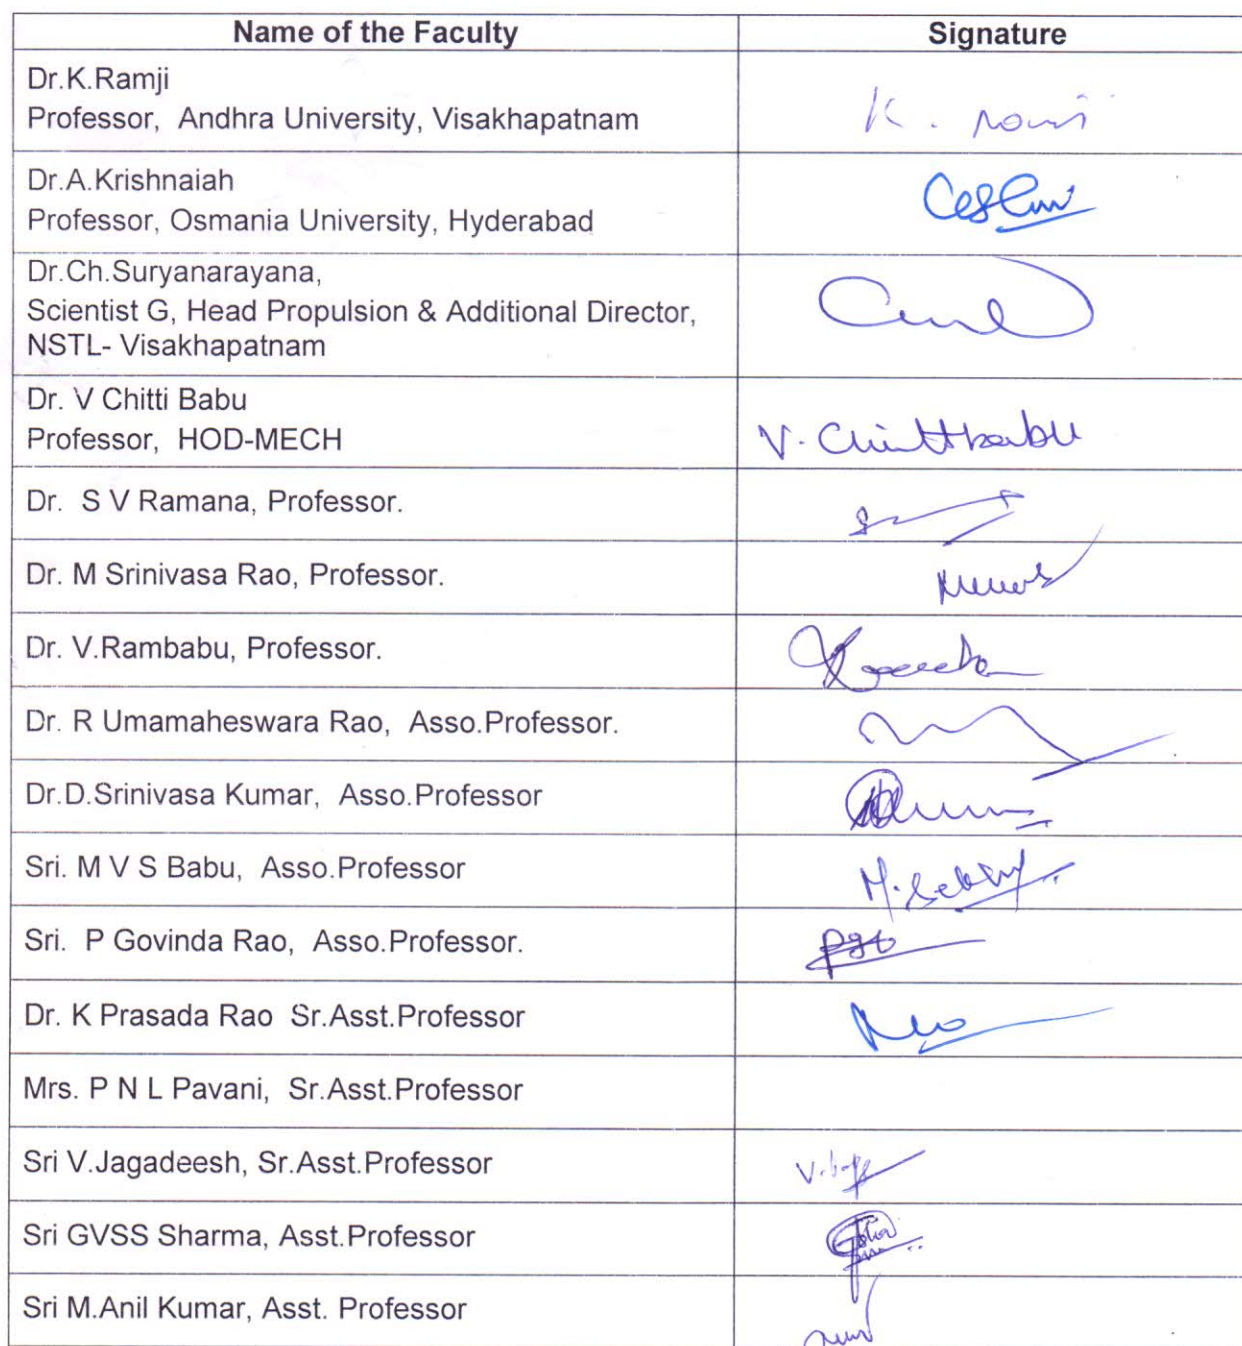 Name of the Faculty
Signature
Dr.K.Ramji
Professor, Andhra University, Visakhapatnam
K. Ramji
Dr.A.Krishnaiah
Professor, Osmania University, Hyderabad
Dr.Ch.Suryanarayana,
Scientist G, Head Propulsion & Additional Director,
NSTL- Visakhapatnam
Dr. V Chitti Babu
Professor, HOD-MECH
V. Chittibabu
Dr. S V Ramana, Professor.
Dr. M Srinivasa Rao, Professor.
Dr. V.Rambabu, Professor.
Dr. R Umamaheswara Rao, Asso.Professor.
Dr.D.Srinivasa Kumar, Asso.Professor
Sri. M V S Babu, Asso.Professor
Sri. P Govinda Rao, Asso.Professor.
Dr. K Prasada Rao Sr.Asst.Professor
Mrs. P N L Pavani, Sr.Asst.Professor
Sri V.Jagadeesh, Sr.Asst.Professor
Sri GVSS Sharma, Asst.Professor
Sri M.Anil Kumar, Asst. Professor